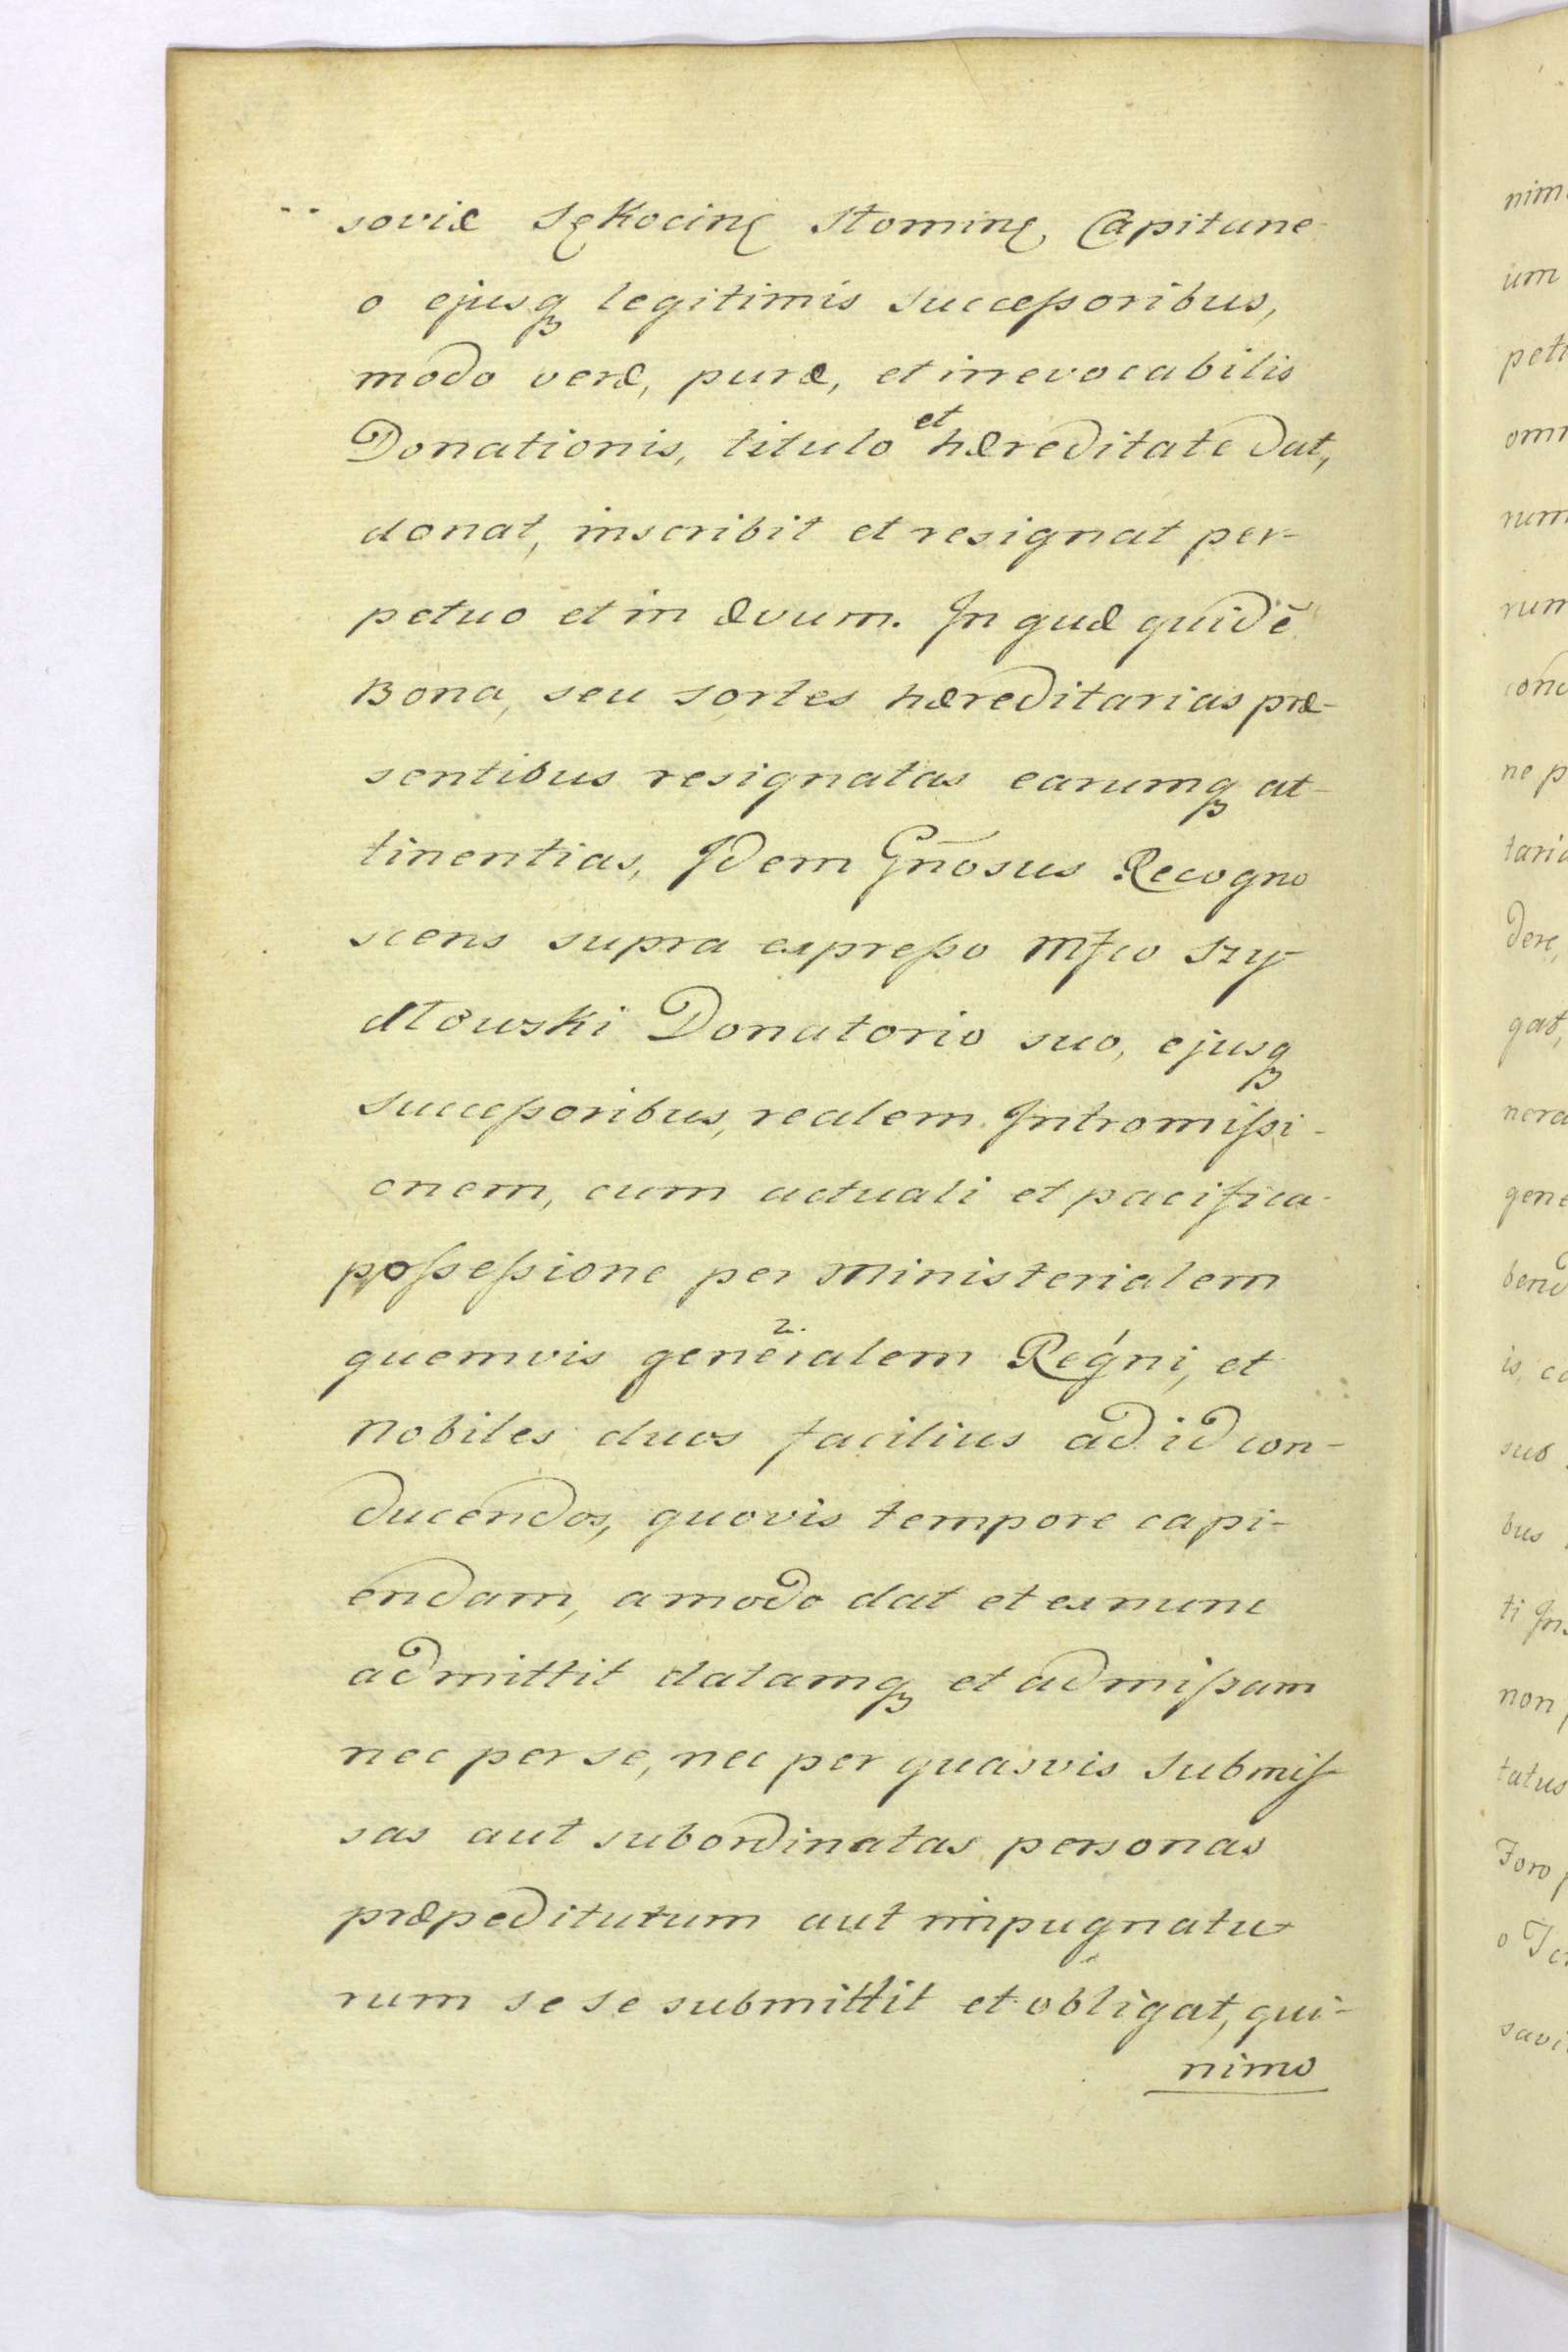 soviæ Sękocinę Słominę, Capitane
o ejusq₃ legitimis Succeſsoribus,
modo veræ, puræ, et irrevocabilis
Donationis, titulo et hæreditate dat,
donat, inscribit et resignat per-
petuo et in ævum. In quæ quidē
Bona, seu sortes hæreditarias præ-
sentibus resignatas earumq₃ at-
tinentias, Idem Gn̄osus Recogno
scens supra expreſso Mfco Szy-
dłowski Donatorio suo, ejusq₃
Succeſsoribus, realem Intromiſsi-
onem, cum actuali et pacifica
poſseſsione per Ministerialem
quemvis generalem Regni, et
Nobiles duos facilius ad id con-
ducendos, quovis tempore capi-
endam, amodo dat et exnunc
admittit datamq₃ et admiſsam
nec per se, nec per quasvis Submiſ-
sas aut subordinatas personas
præpediturum aut impugnatu-
rum sese submittit et obligat, qui-
nimo
nim
ium
peti
omn
rum
rum
conc
ne p
taria
dere,
gat,
nera
gene
bend
is, co
sub
bus
ti Ins
non
tatus
Foro
savi